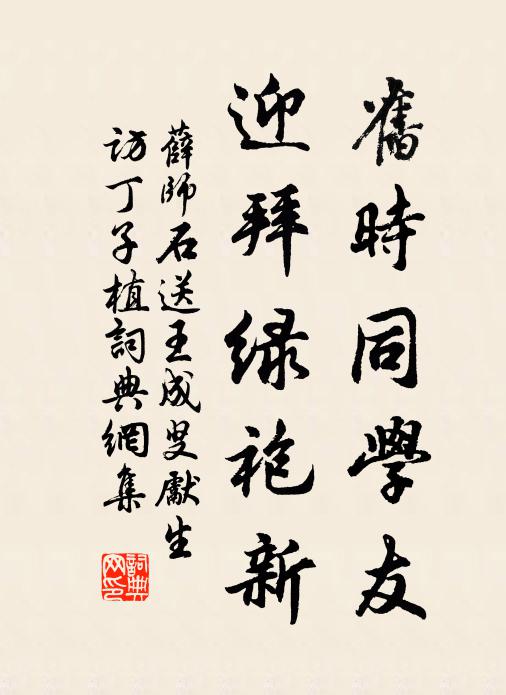 舊時同學友
迎拜绿袍新
薛師石送王成叟獻生
訪丁子植詞典網集
詞典网印